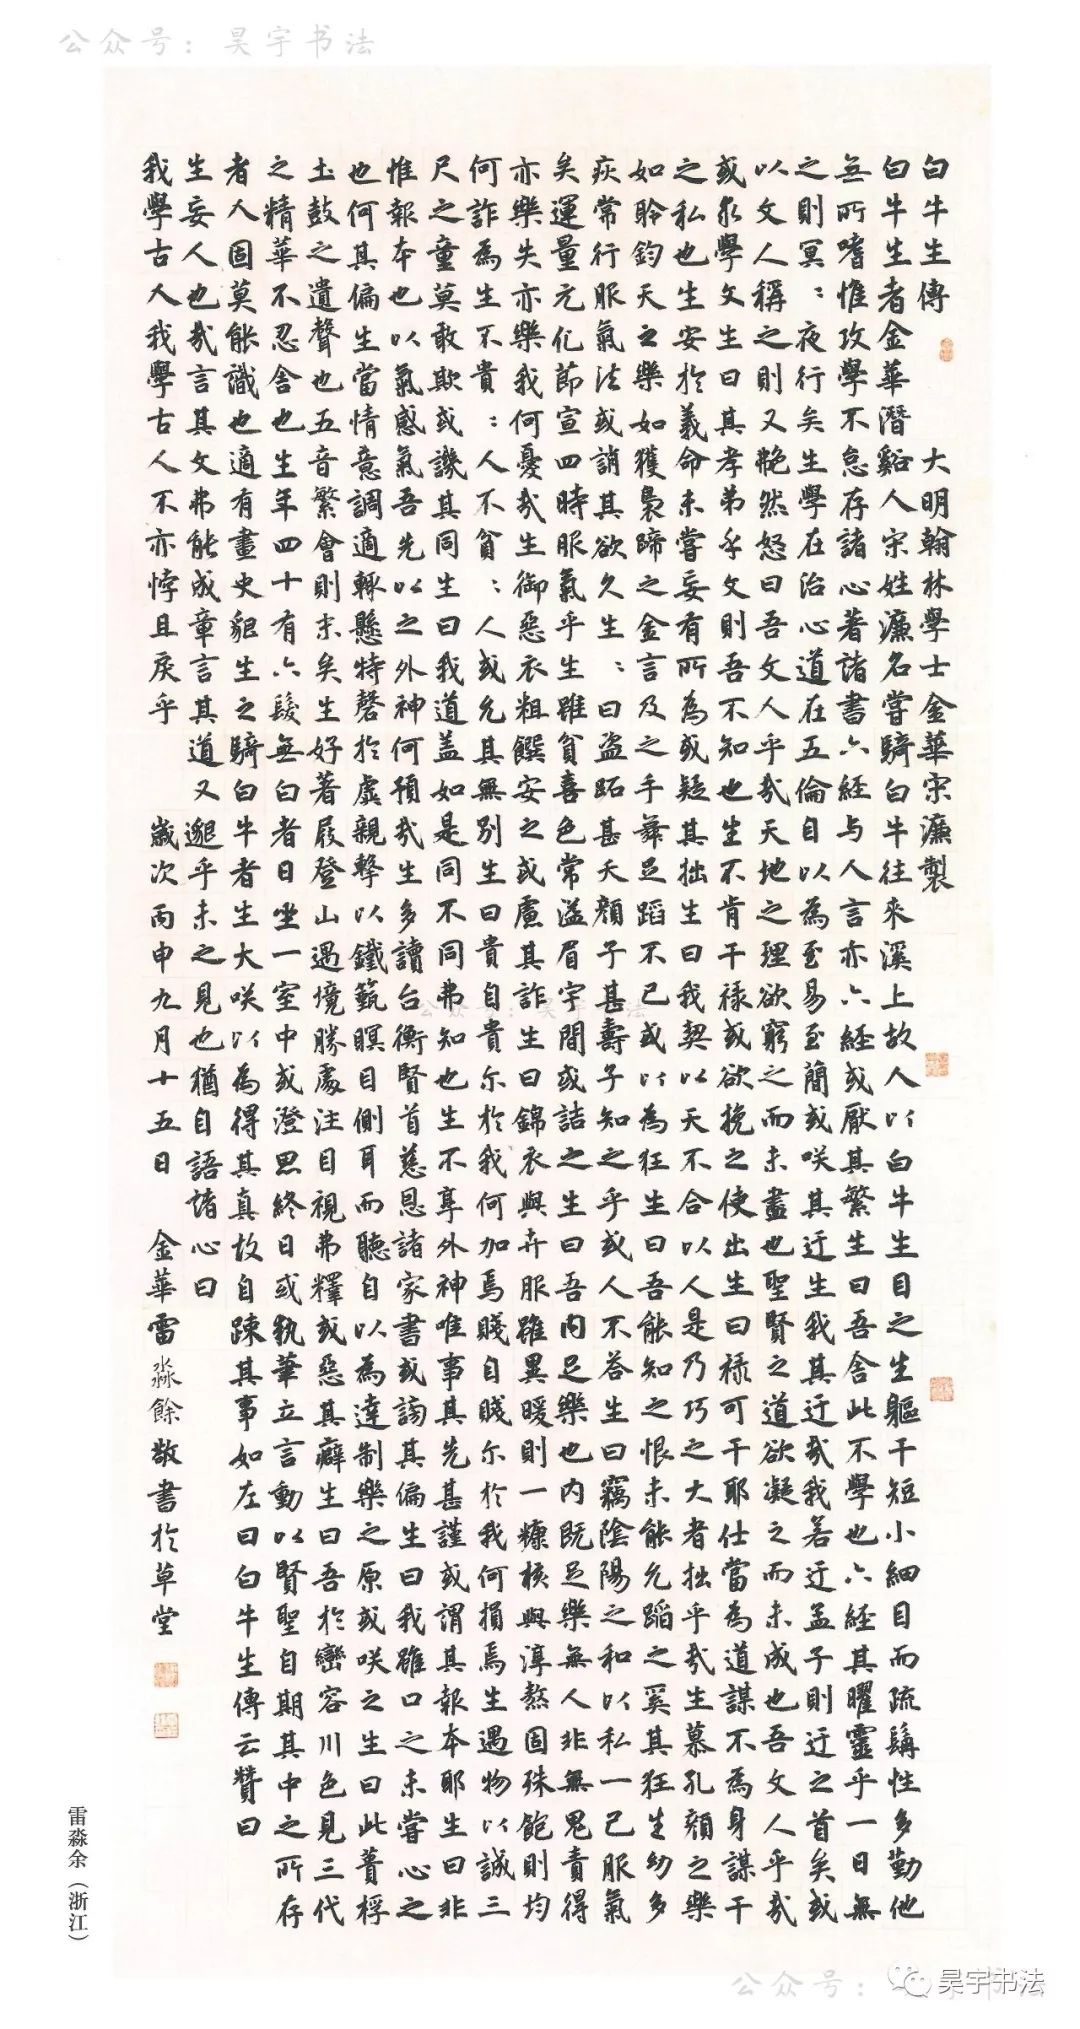 公众号：昊宇书法
白牛生傳　大明翰林學士金華宋濂製
白牛生者金華潛谿人宋姓濂名嘗騎白牛往來溪上故人以白牛生目之生軀干短小細目而疏髯性多勤他
無所嗜惟攻學不怠存諸心著諸書六經与人言亦六經或厭其繁生曰吾舍此不學也六經其曜靈乎一日無
之則冥：夜行矣生學在治心道在五倫自以為至易至簡或咲其迂生我其迂㢤我若迂孟子則迂之首矣或
以文人稱之則又艴然怒曰吾文人乎㢤天地之理欲窮之而未盡也聖賢之道欲凝之而未成也吾文人乎㢤
或求學文生曰其孝弟乎文則吾不知也生不肯干祿或欲挽之使出生曰祿可干耶仕當為道謀不為身謀干
之私也生安於義命未嘗妄有所為或疑其拙生曰我契以天不合以人是乃巧之大者拙乎㢤生慕孔顏之樂
如聆鈞天之樂如獲裊蹄之金言及之手舞足蹈不已或以為狂生曰吾能知之恨未能允蹈之奚其狂生幼多
疾常行服氣法或誚其欲久生：曰盜跖甚夭顏子甚壽子知之乎或人不答生曰竊陰陽之和以私一己服氣
矣運量元化節宣四時服氣乎生雖貧喜色常溢眉宇間或詰之生曰吾內足樂也內既足樂無人非無鬼責得
亦樂失亦樂我何憂㢤生御惡衣粗饌安之或慮其詐生曰錦衣與卉服雖異暖則一糠核與淳熬固殊飽則均
何詐為生不貴：人不貧：人或允其無別生曰貴自貴尔於我何加焉賤自賤尔於我何損焉生遇物以誠三
尺之童莫敢欺或譏其同生曰我道盖如是同不同弗知也生不享外神唯事其先甚謹或謂其報本耶生曰非
惟報本也以氣感氣吾先以之外神何預㢤生多讀台衡賢首慈恩諸家書或謗其偏生曰我雖口之未嘗心之
也何其偏生當情意調適輒懸特磬於虛親擊以鐵篪瞑目側耳而聽自以為達制樂之原或咲之生曰此蕢桴
土鼓之遺聲也五音繁會則末矣生好著屐登山遇境勝處注目視弗釋或惡其癖生曰吾於巒容川色見三代
之精華不忍舍也生年四十有六髮無白者日坐一室中或澄思終日或執筆立言動以賢聖自期其中之所存
者人固莫能識也適有畫史貌生之騎白牛者生大咲以為得其真故自疎其事如左曰白牛生傳云贊曰
生妄人也㢤言其文弗能成章言其道又邈乎未之見也猶自語諸心曰
我學古人我學古人不亦悖且戾乎　歲次丙申九月十五日　金華雷淼餘敬書於草堂
公众号：昊宇书法
雷淼余（浙江）
公众号：
昊宇书法